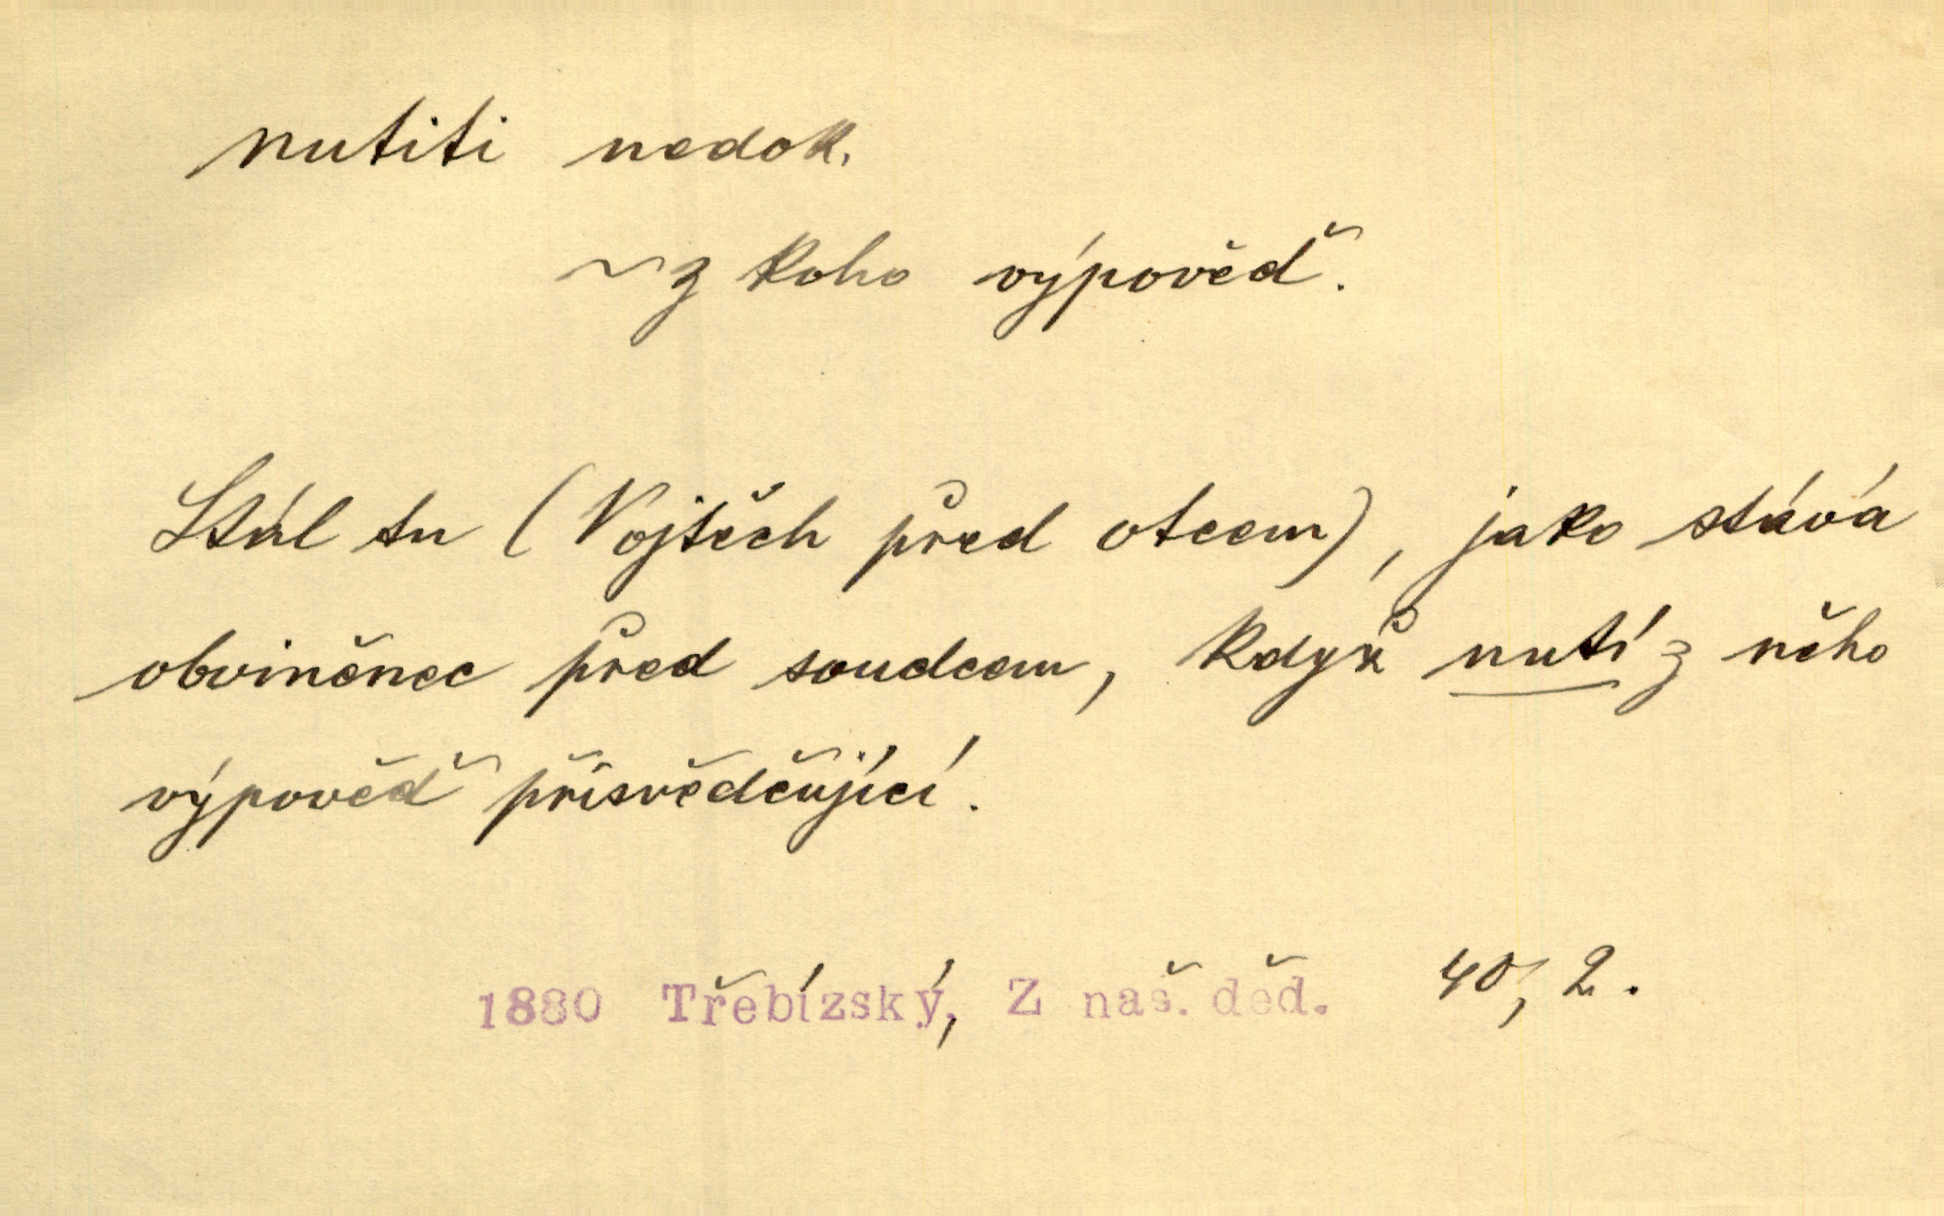 nutiti nedok.
~ z koho výpověď.
Stál tu (Vojtěch před otcem), jako stává
obviněnec před soudcem, když nutí z něho
výpověď přisvědčující.
1880 Třebízský, Z naš. děd. 40, 2.